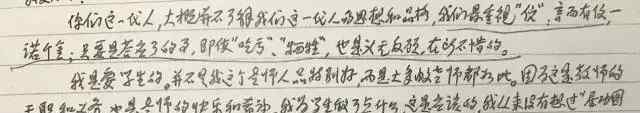 你们这一代人，大概并不了解我们这一代人的思想和品格，我们最重视“信”，言而有信，一
诺千金；只要是答应了的事，即使“吃亏”、“牺牲”，也是义无反顾，在所不惜的。
我是爱学生的。并不是我这个老师人品特别好，而是大多数老师都如此。因为这是教师的
天职和义务，也是老师的快乐和幸福。我为学生做了点什么，这是应该的，我从来没有想过“居功图